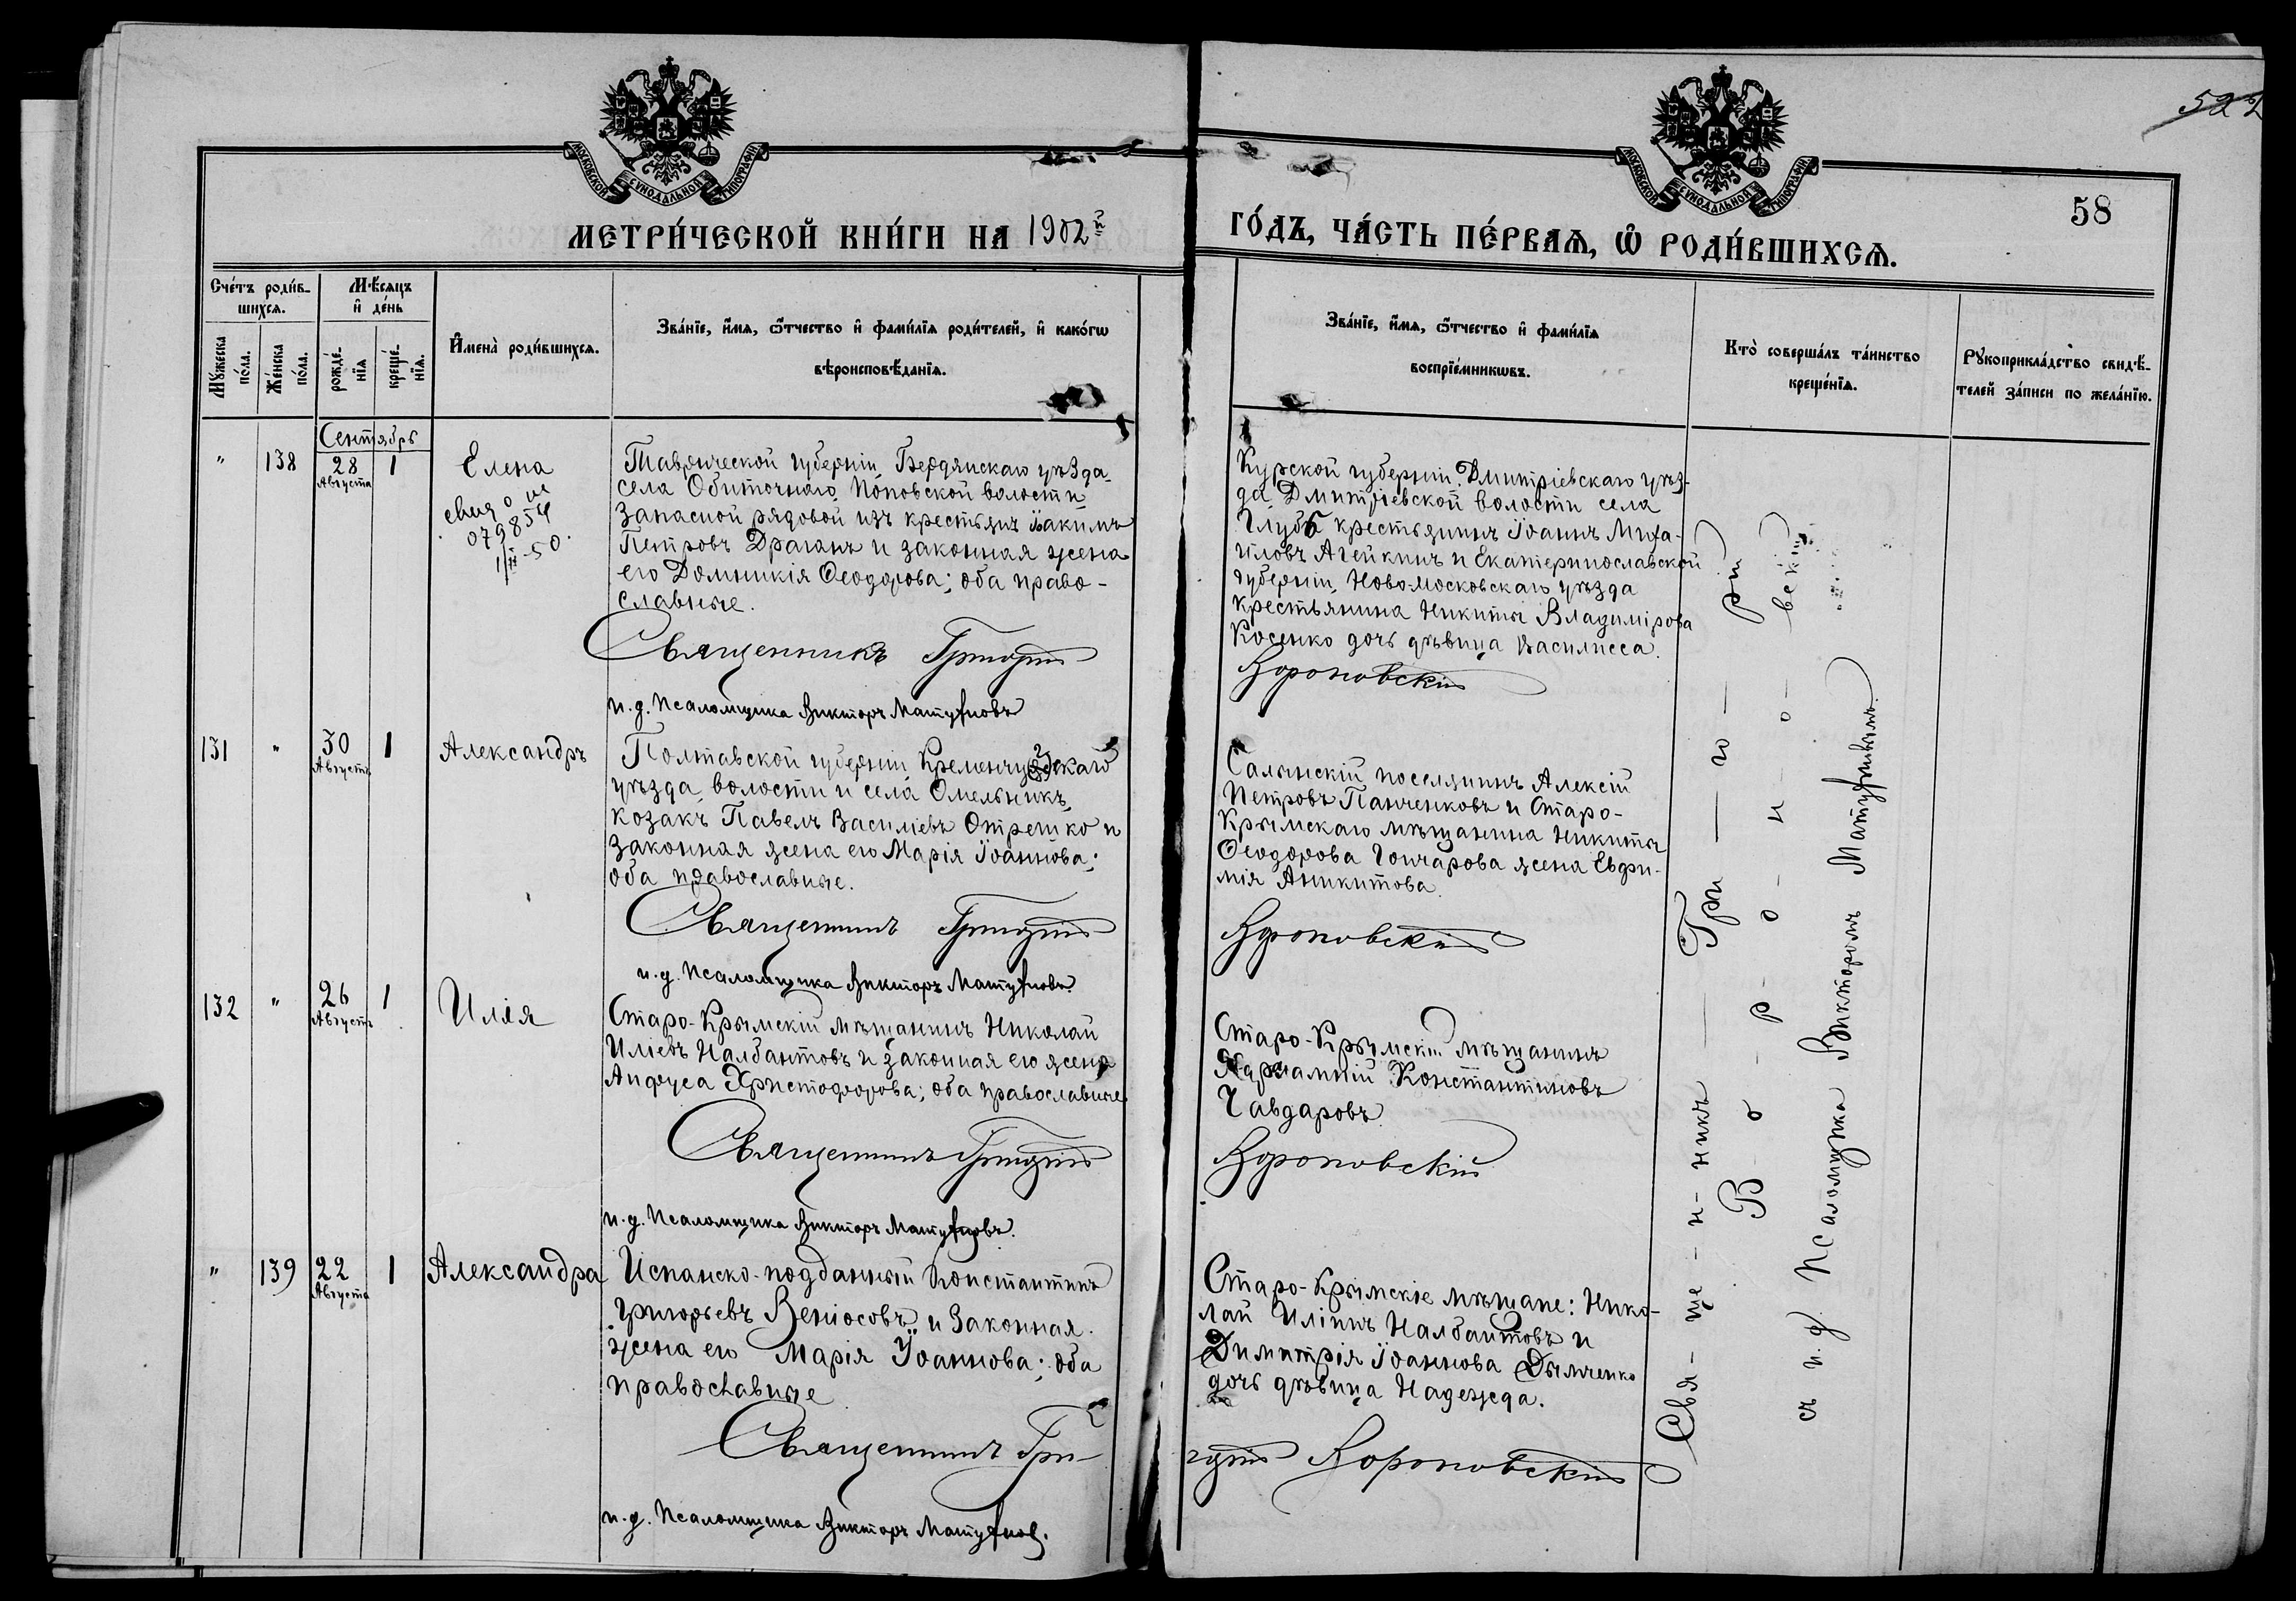 522
58
МОСКОВСКОЙ СѴНОДАЛЬНОЙ ТИПОГРАФИИ
МОСКОВСКОЙ СѴНОДАЛЬНОЙ ТИПОГРАФИИ
МЕТРИ́ЧЕСКОЙ КНИ́ГИ НА 1902й
ГО́ДЪ, ЧА́СТЬ ПЕ́РВАѦ, Ѿ РОДИ́ВШИХСѦ.
Сче́тъ роди́в-
шихсѧ.
Мꙋ́жеска по́ла.
Же́нска по́ла.
Мѣ́сѧцъ
и҆ де́нь
рожде́-
нїѧ
креще́-
нїѧ.
И҆мена̀ роди́вшихсѧ.
Зва́нїе, и҆́мѧ, ѻ҆́тчество и҆ фами́лїѧ роди́телей, и҆ како́гѡ
вѣроисповѣ́данїѧ.
Зва́нїе, и҆́мѧ, ѻ҆́тчество и҆ фами́лїѧ
воспрїе́мникѡвъ.
Кто̀ соверша́лъ та́инство
креще́нїѧ.
Рꙋкоприкла́дство свидѣ́-
телей за́писи по жела́нїю.
Сентябрь
" 138 28 Августа 1 Елена
079854
1/II-50.
Таврической губерніи, Бердянскаго уѣзда,
села Обиточнаго, Поповской волости
запасной рядовой изъ крестьянъ Іакимъ
Петровъ Драганъ и законная жена
его Домникія Ѳеодорова; оба право-
славные.
Священникъ Григорій
и.д. Псаломщика Викторъ Матуфновъ
Курской губерніи, Дмитріевскаго уѣз-
да Дмитріевской волости села
крестьянинъ Іоаннъ Миха-
иловъ Агейкинъ и Екатеринославской
губерніи, Ново-московскаго уѣзда
крестьянина Никиты Владимірова
Косенко дочь дѣвица Василисса.
Вороновскій
131 " 30 Августа 1 Александръ
Полтавской губерніи, Кременчугскаго
уѣзда, волости и села Омельникъ,
козакъ Павелъ Василіевъ Отрешко и
законная жена его Марія Іоаннова;
оба православные.
Священникъ Григорій
и.д. Псаломщика Викторъ Матуфновъ
Салынскій поселянинъ Алексій
Петровъ Панченковъ и Старо-
Крымскаго мѣщанина Никиты
Ѳеодорова Гончарова жена Евфи-
мія Аникитова
Вороновскій
132 " 26 Августа 1 Илія
Старо-Крымскій мѣщанинъ Николай
Иліевъ Налбантовъ и законная его жена
Анфуса Христофорова; оба православные.
Священникъ Григорій
и.д. Псаломщика Викторъ Матуфновъ.
Старо-Крымскій мѣщанинъ
Харлампій Константиновъ
Чавдаровъ
Вороновскій
" 139 22 Августа 1 Александра
Испанско-подданный Константинъ
Григорьевъ Веніосовъ и законная
жена его Марія Іоаннова; оба
православные
Священникъ Гри-
и.д. Псаломщика Викторъ Матуфнов.
Старо-Крымскіе мѣщане: Нико-
лай Иліинъ Налбантовъ и
Димитрія Іоаннова Дымченко
дочь дѣвица Надежда.
горій Вороновскій
Свя-ще-н-никъ — Гри — го — рій
В-о-р-о-н-о-вскій
съ и.д. Псаломщика Викторомъ Матуфновымъ